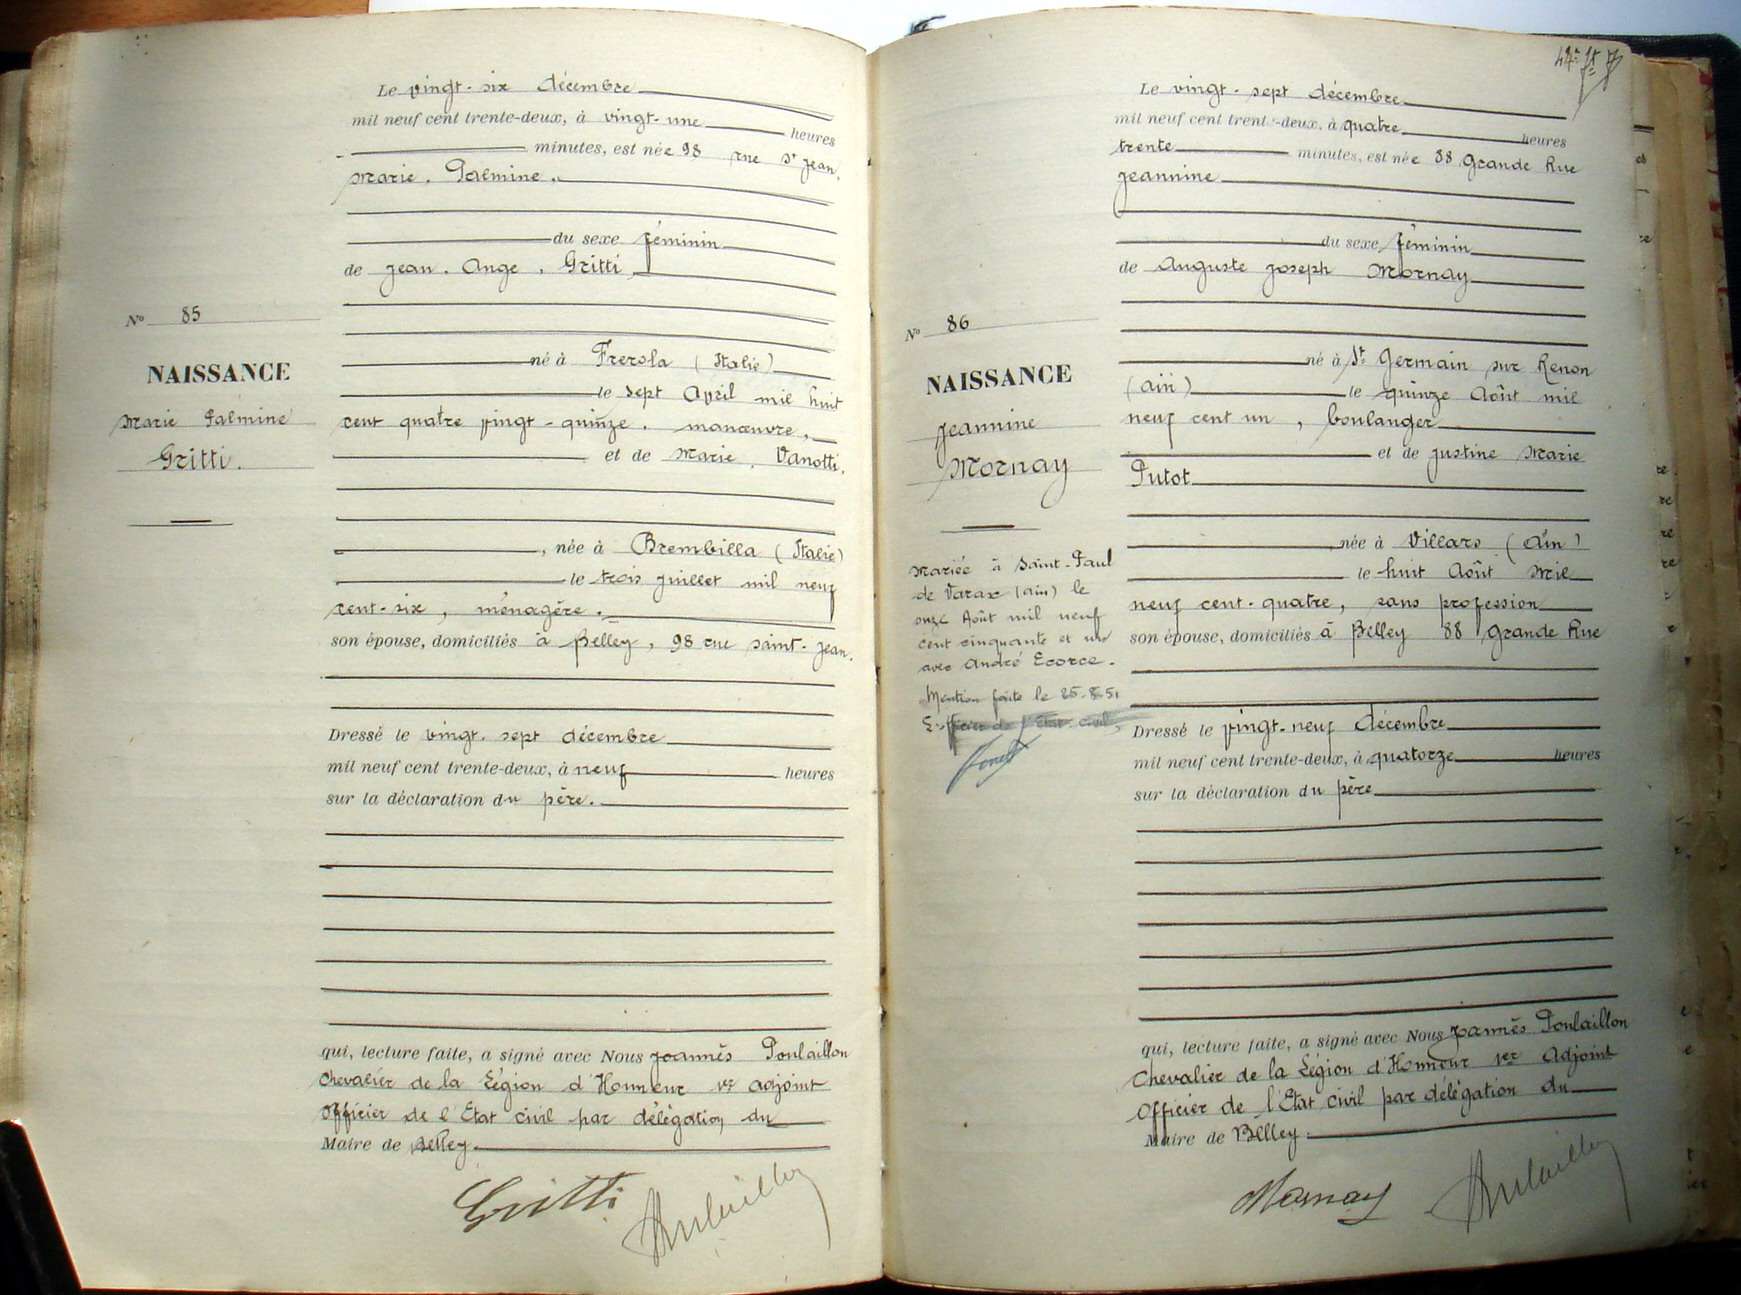 Le vingt-six décembre
mil neuf cent trente-deux, à vingt-une heures
minutes, est née 98 rue St Jean.
Marie. Palmine.
du sexe féminin
de Jean. Ange. Gritti
né à Frerola (Italie)
le sept April mil huit
cent quatre vingt-quinze. manœuvre.
et de Marie. Vanotti.
née à Brembilla (Italie)
le trois juillet mil neuf
cent-six, ménagère.
son épouse, domiciliés à Belley, 98 rue saint-Jean.
Dressé le vingt-sept décembre
mil neuf cent trente-deux, à neuf heures
sur la déclaration du père.
qui, lecture faite, a signé avec Nous Joannès Ponlaillon
Chevalier de la Légion d'Honneur 1er adjoint
Officier de l'Etat civil par délégation du
Maire de Belley.
Gritti
No 85
NAISSANCE
Marie Palmine
Gritti.
Le vingt-sept décembre
mil neuf cent trente-deux, à quatre heures
trente minutes, est née 88 Grande Rue
Jeannine
du sexe féminin
de Auguste Joseph Mornay
né à St Germain sur Renon
(Ain) le quinze Août mil
neuf cent un, boulanger
et de Justine Marie
Putot
née à Villars (Ain)
le huit Août Mil
neuf cent-quatre, sans profession
son épouse, domiciliés à Belley 88 Grande Rue
Dressé le vingt-neuf décembre
mil neuf cent trente-deux, à quatorze heures
sur la déclaration du père
qui, lecture faite, a signé avec Nous Joannès Ponlaillon
Chevalier de la Légion d'Honneur 1er Adjoint
Officier de l'Etat civil par délégation du
Maire de Belley.
Mornay
No 86
NAISSANCE
Jeannine
Mornay
Mariée à Saint-Paul
de Varax (Ain) le
onze Août mil neuf
cent cinquante et un
avec André Ecorce.
Mention faite le 25-8-51
L'officier de l'Etat civil,